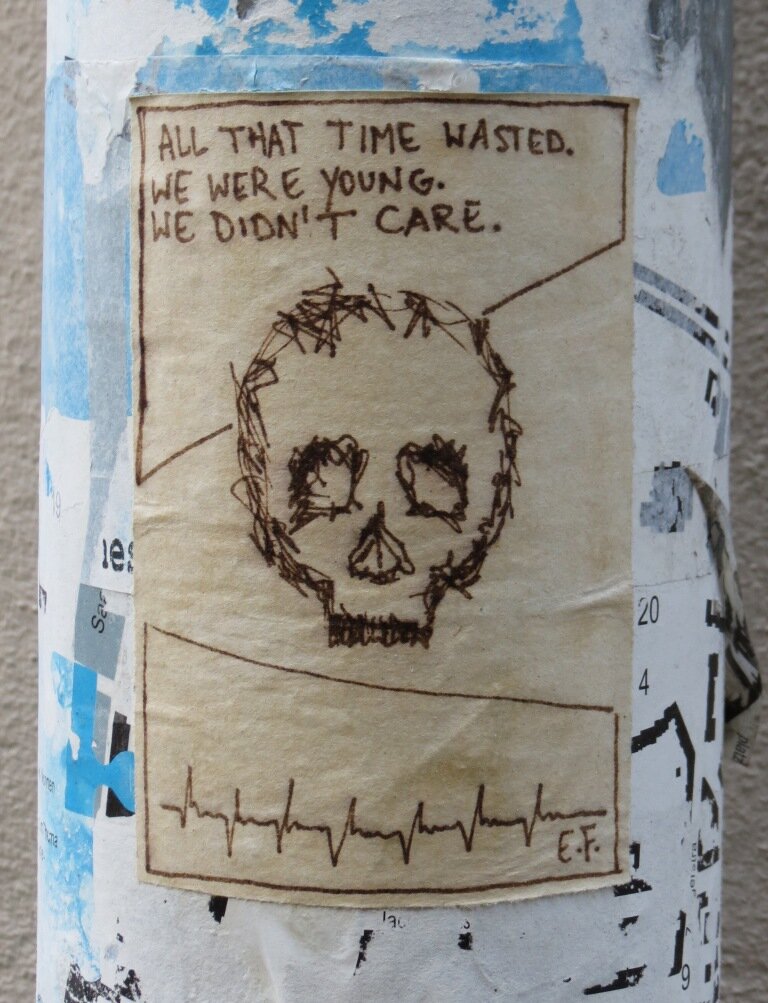 ALL THAT TIME WASTED.
WE WERE YOUNG.
WE DIDN'T CARE.
E.F.
20
4
9